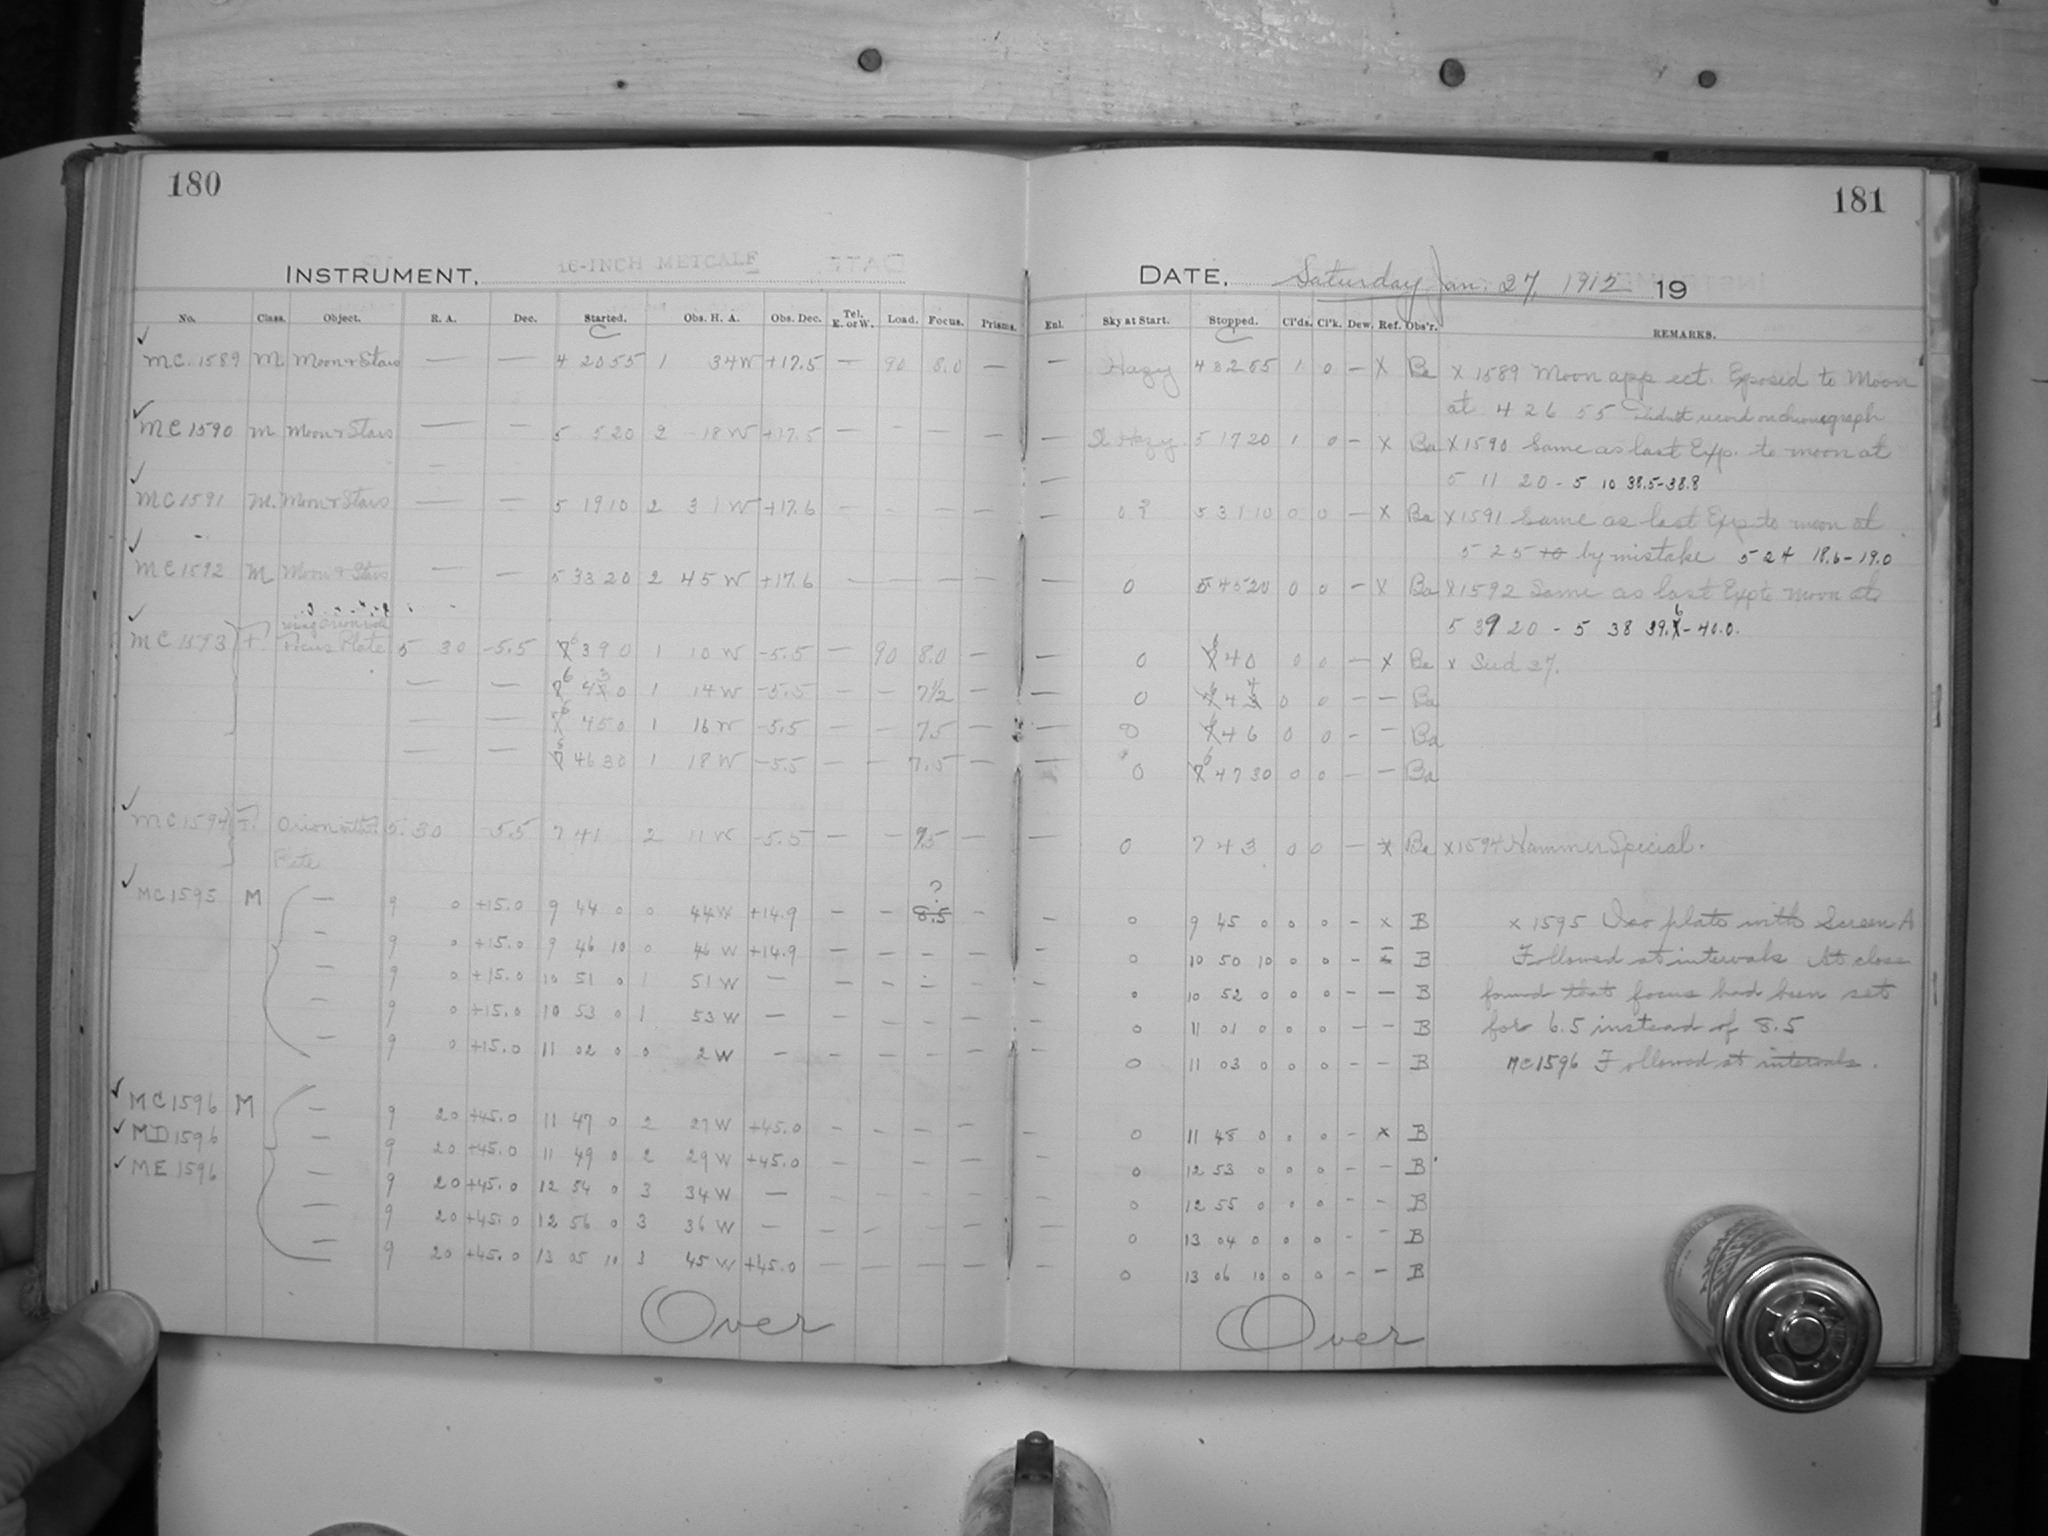 180
181
INSTRUMENT, 16-INCH METCALF
DATE, Saturday Jan. 27, 1912 19
No. Class. Object. R. A. Dec. Started. Obs. H. A. Obs. Dec. Tel. E. or W. Load. Focus. Prisms. Enl. Sky at Start. Stopped. Cl'ds. Cl'k. Dew. Ref. Obs'r. REMARKS.
C C
MC. 1589 M Moon & Stars — — 4 20 55 1 34W +17.5 — 90 8.0 — — Hazy 4 32 55 1 0 — X Ba X 1589 Moon app ect. Exposed to Moon
at 4 26 55 Didn't record on chronograph
MC 1590 M Moon & Stars — — 5 5 20 2 18W +17.5 — — — — — Sl Hazy 5 17 20 1 0 — X Ba X 1590 Same as last Exp. to moon at
5 11 20 - 5 10 38.5-38.8
MC 1591 M. Moon & Stars — — 5 19 10 2 31W +17.6 — — — — — 0? 5 31 10 0 0 — X Ba X 1591 Same as last Exp to moon at
5 25 10 by mistake 5 24 18.6-19.0
MC 1592 M Moon & Stars — — 5 33 20 2 45W +17.6 — — — — — 0 5 45 20 0 0 — X Ba X 1592 Same as last Exp to Moon at
5 39 20 - 5 38 39.6-40.0.
MC 1593 F. Focus Plate 5 30 -5.5 6 39 0 1 10W -5.5 — 90 8.0 — — 0 6 40 0 0 — X Ba x Sud 27.
— — 6 43 0 1 14W -5.5 — — 7 1/2 — — 0 6 44 0 0 — — Ba
— — 6 45 0 1 16W -5.5 — — 7.5 — — 0 6 46 0 0 — — Ba
— — 6 46 30 1 18W -5.5 — — 7.5 — — 0 6 47 30 0 0 — — Ba
MC 1594 F. Orion 5 30 -5.5 7 41 2 11W -5.5 — — 7.5 — — 0 7 43 0 0 — X Ba X 1594 Hammer Special.
Plate
MC 1595 M — 9 0 +15.0 9 44 0 0 44W +14.9 — — 8.5 ? — — 0 9 45 0 0 0 — x B x 1595 Iso plate with Screen A
— 9 0 +15.0 9 46 10 0 46W +14.9 — — — — — 0 10 50 10 0 0 — — B Followed at intervals At close
— 9 0 +15.0 10 51 0 1 51W — — — — — — 0 10 52 0 0 0 — — B found that focus had been set
— 9 0 +15.0 10 53 0 1 53W — — — — — — 0 11 01 0 0 0 — — B for 6.5 instead of 8.5
— 9 0 +15.0 11 02 0 0 2W — — — — — — 0 11 03 0 0 0 — — B MC1596 Followed at intervals.
MC 1596 M — 9 20 +45.0 11 47 0 2 27W +45.0 — — — — — 0 11 48 0 0 0 — x B
MD 1596 — 9 20 +45.0 11 49 0 2 29W +45.0 — — — — — 0 12 53 0 0 0 — — B
ME 1596 — 9 20 +45.0 12 54 0 3 34W — — — — — — 0 12 55 0 0 0 — — B
— 9 20 +45.0 12 56 0 3 36W — — — — — — 0 13 04 0 0 0 — — B
— 9 20 +45.0 13 05 10 3 45W +45.0 — — — — — 0 13 06 10 0 0 — — B
Over Over